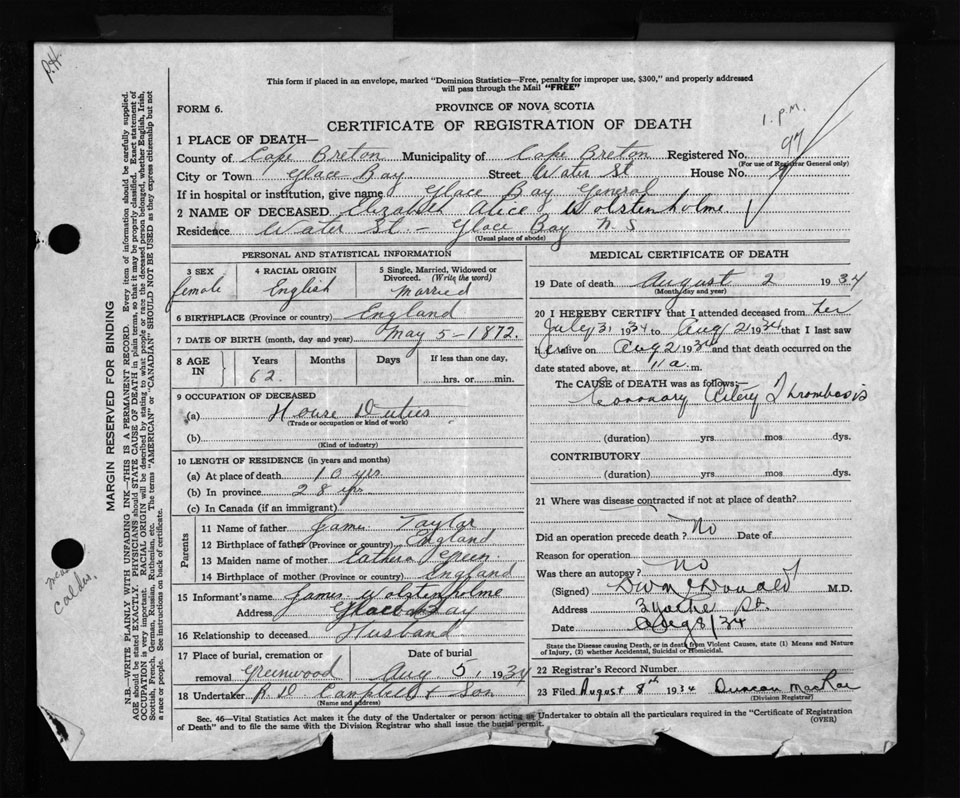 P.H.
This form if placed in an envelope, marked "Dominion Statistics—Free, penalty for improper use, $300," and properly addressed
will pass through the Mail "FREE"
FORM 6.
PROVINCE OF NOVA SCOTIA
1. P.M.
CERTIFICATE OF REGISTRATION OF DEATH
1 PLACE OF DEATH—
97
County of Cape Breton Municipality of Cape Breton Registered No.
(For use of Registrar General only)
City or Town Glace Bay Street Water St House No.
If in hospital or institution, give name Glace Bay General
2 NAME OF DECEASED Elizabeth Alice Wolstenholme
Residence Water St — Glace Bay N. S
(Usual place of abode)
PERSONAL AND STATISTICAL INFORMATION
3 SEX female
4 RACIAL ORIGIN English
5 Single, Married, Widowed or Divorced. (Write the word) Married
6 BIRTHPLACE (Province or country) England
7 DATE OF BIRTH (month, day and year) May 5 - 1872.
8 AGE IN Years 62. Months Days If less than one day, hrs. or min.
9 OCCUPATION OF DECEASED
(a) House Duties
(Trade or occupation or kind of work)
(b)
(Kind of industry)
10 LENGTH OF RESIDENCE (in years and months)
(a) At place of death 10 yrs
(b) In province 28 yrs.
(c) In Canada (if an immigrant)
Parents
11 Name of father James Taylor
12 Birthplace of father (Province or country) England
13 Maiden name of mother Green
14 Birthplace of mother (Province or country) England
15 Informant's name James Wolstenholme
Address Glace Bay
16 Relationship to deceased Husband
17 Place of burial, cremation or removal Greenwood
Date of burial Aug 5, 1934
18 Undertaker Campbell & Son
(Name and address)
MEDICAL CERTIFICATE OF DEATH
19 Date of death August 2 1934
(Month, day and year)
20 I HEREBY CERTIFY that I attended deceased from her
July 31 1934 to Aug 2 1934 that I last saw
her alive on Aug 2 1934 and that death occurred on the
date stated above, at 11 a. m.
The CAUSE of DEATH was as follows:
Coronary Artery Thrombosis
(duration) yrs mos dys.
CONTRIBUTORY
(duration) yrs. mos. dys.
21 Where was disease contracted if not at place of death?
Did an operation precede death? No Date of
Reason for operation
Was there an autopsy? No
(Signed) McDonald M.D.
Address
Date Aug 8/34
State the Disease causing Death, or in death from Violent Causes, state (1) Means and Nature
of Injury, (2) whether Accidental, Suicidal or Homicidal.
22 Registrar's Record Number
23 Filed August 8th 1934 Duncan MacRae
(Division Registrar)
Sec. 46—Vital Statistics Act makes it the duty of the Undertaker or person acting as Undertaker to obtain all the particulars required in the "Certificate of Registration
of Death" and to file the same with the Division Registrar who shall issue the burial permit.
(OVER)
MARGIN RESERVED FOR BINDING
N.B.—WRITE PLAINLY WITH UNFADING INK—THIS IS A PERMANENT RECORD. Every item of information should be carefully supplied.
AGE should be stated EXACTLY. PHYSICIANS should STATE CAUSE OF DEATH in plain terms, so that it may be properly classified. Exact statement of
OCCUPATION is very important. RACIAL ORIGIN will be described by stating to what people or race the deceased person belonged, whether English, Irish,
Scottish, French, German, Russian, Ruthenian, etc. The terms "AMERICAN" or "CANADIAN" SHOULD NOT BE USED as they express citizenship but not
a race or people. See instructions on back of certificate.